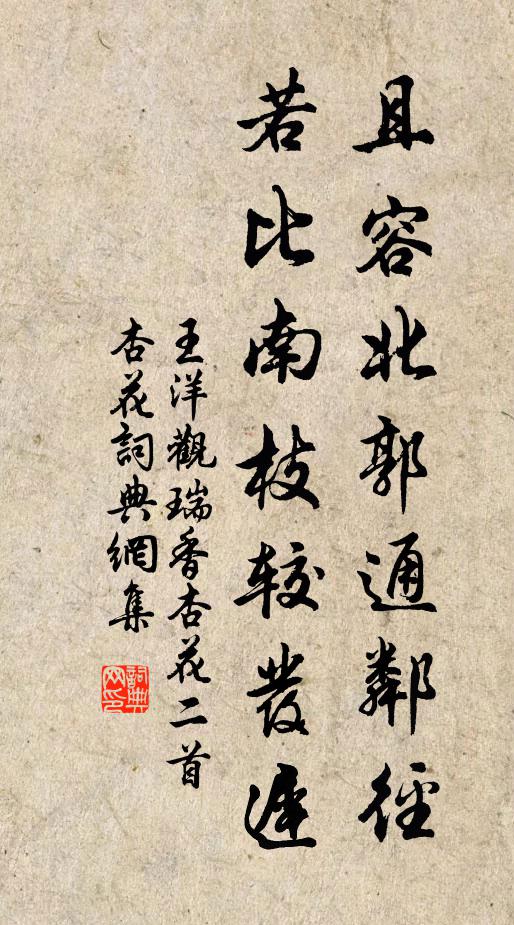 且容北郭通鄰徑
若比南枝较發遲
王洋觀瑞香杏花二首
杏花詞典網集
詞典
网印